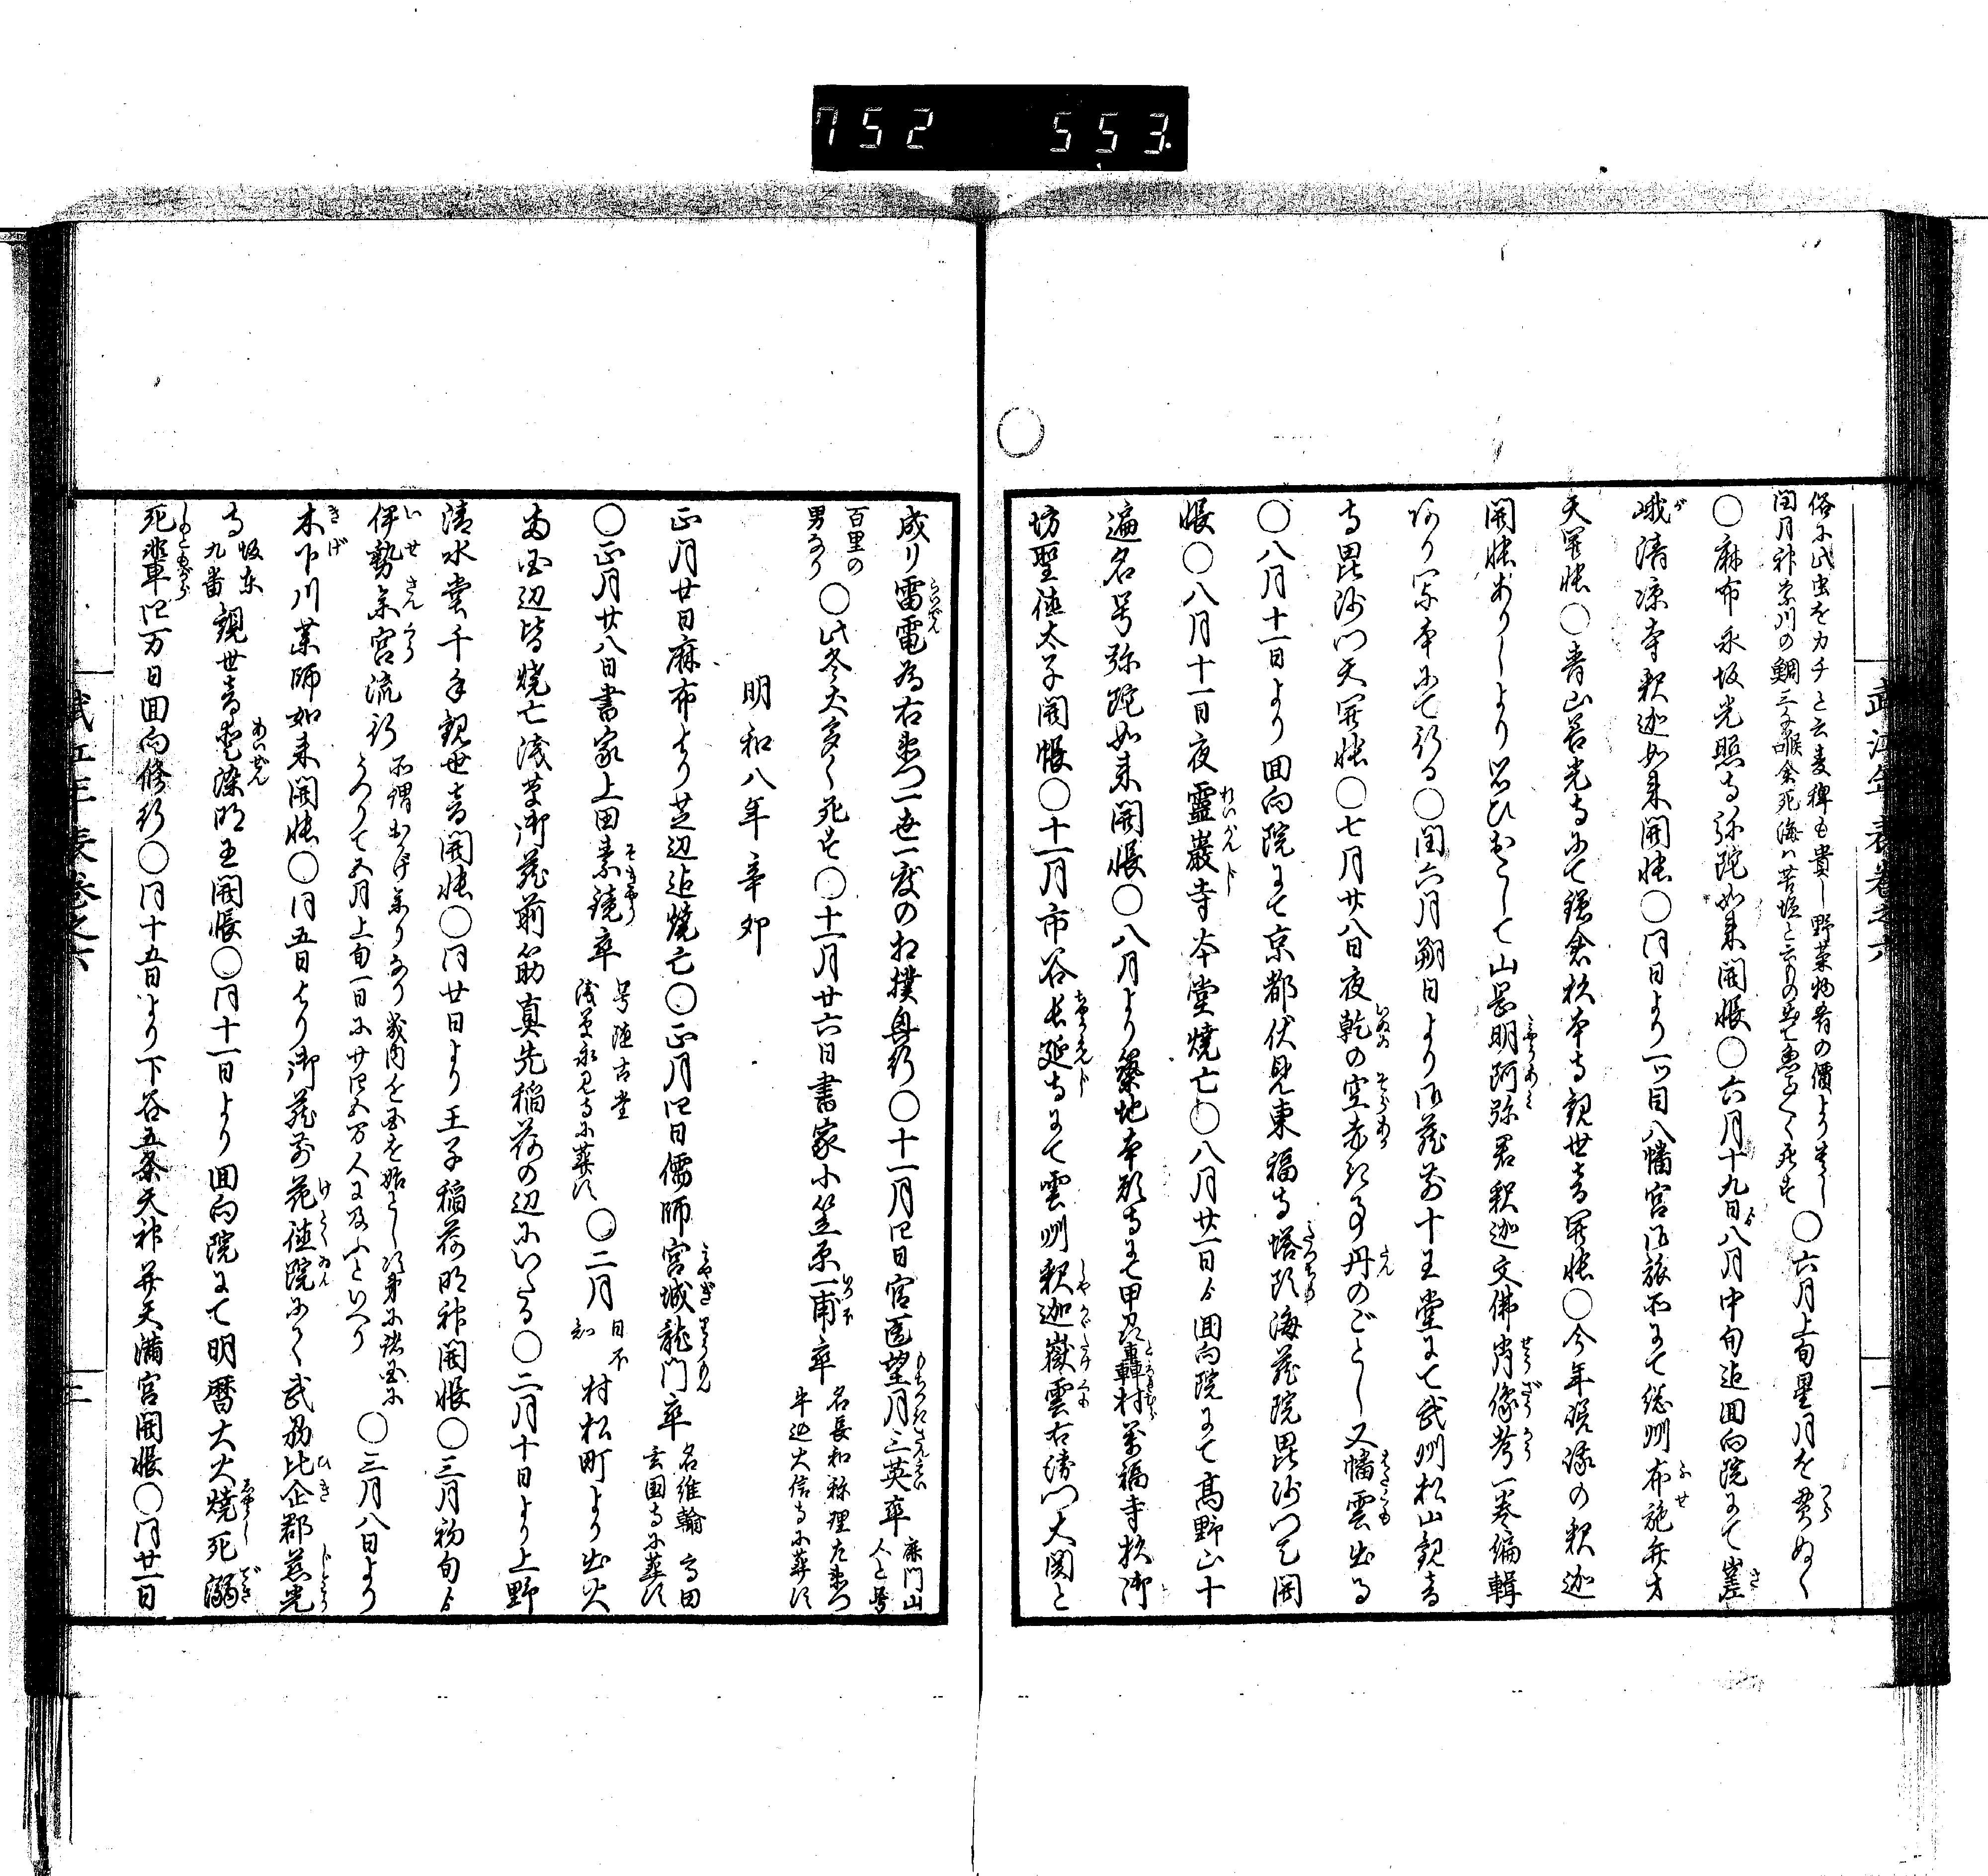 752 553
武江年表巻之六
俗に此虫をカチと云麦稗も貴し野菜物者の價よりはし
閏月神奈川の鯛三 喉余死海ハ苦塩と云もの出て魚多く死す
○六月上旬星月を貫ぬく
○麻布永坂光照寺弥陀如来開帳○六月十九日ゟ八月中旬迄回向院にて嵯
峨清凉寺釈迦如来開帳○同日より一ツ目八幡宮御旅所にて総州布施弁才
天開帳○青山善光寺にて鎌倉杉本寺観世音開帳○今年嵯峨の釈迦
開帳ありしより思ひおこして山岡明阿弥君釈迦文佛肖像考一巻編輯
あり写本にて行る○閏六月朔日より御蔵前十王堂にて武州松山観音
寺毘沙門天開帳○七月廿八日夜乾の空赤き事丹のごとし又幡雲出る
○八月十一日より回向院にて京都伏見東福寺塔頭海蔵院毘沙門天開
帳○八月十一日夜靈巖寺本堂焼亡○八月廿一日ゟ回向院にて高野山十
遍名号弥陀如来開帳○八月より築地本願寺にて甲州轟村万福寺杉御
坊聖徳太子開帳○十一月市谷長延寺にて雲州釈迦嶽雲右衛門大関と
成り雷電為右衛門一世一度の相撲興行○十一月四日官医望月三英卒
鹿門山
人と号
百里の
男なり
○此冬犬多く死す○十二月廿六日書家小笠原一甫卒
名長和称理左衛門
牛込大信寺に葬す
明和八年辛卯
正月廿日麻布より芝辺迄焼亡○正月四日儒師宮城龍門卒
名維翰 高田
玄国寺に葬す
○正月廿八日書家上田素鏡卒
号漣古堂
浅草永見寺に葬す
○二月
日不
知
村松町より出火
両国辺皆焼亡浅草御蔵前筋真先稲荷の辺にいたる○二月十日より上野
清水堂千手観世音開帳○同廿日より王子稲荷明神開帳○三月初旬ゟ
伊勢参宮流行
所謂おかげ参りなり畿内近国を始とし次第に諸国に
うつりて五月上旬一日に廿四五万人に及ふといへり
○三月八日より
木下川薬師如来開帳○同五日より御蔵前花徳院にて武州比企郡慈光
寺
坂東
九番
観世音愛染明王開帳○同十一日より回向院にて明暦大火焼死溺
死輩車四万日回向修行○同十五日より下谷五条天神并天満宮開帳○同廿一日
武江年表巻之六
二